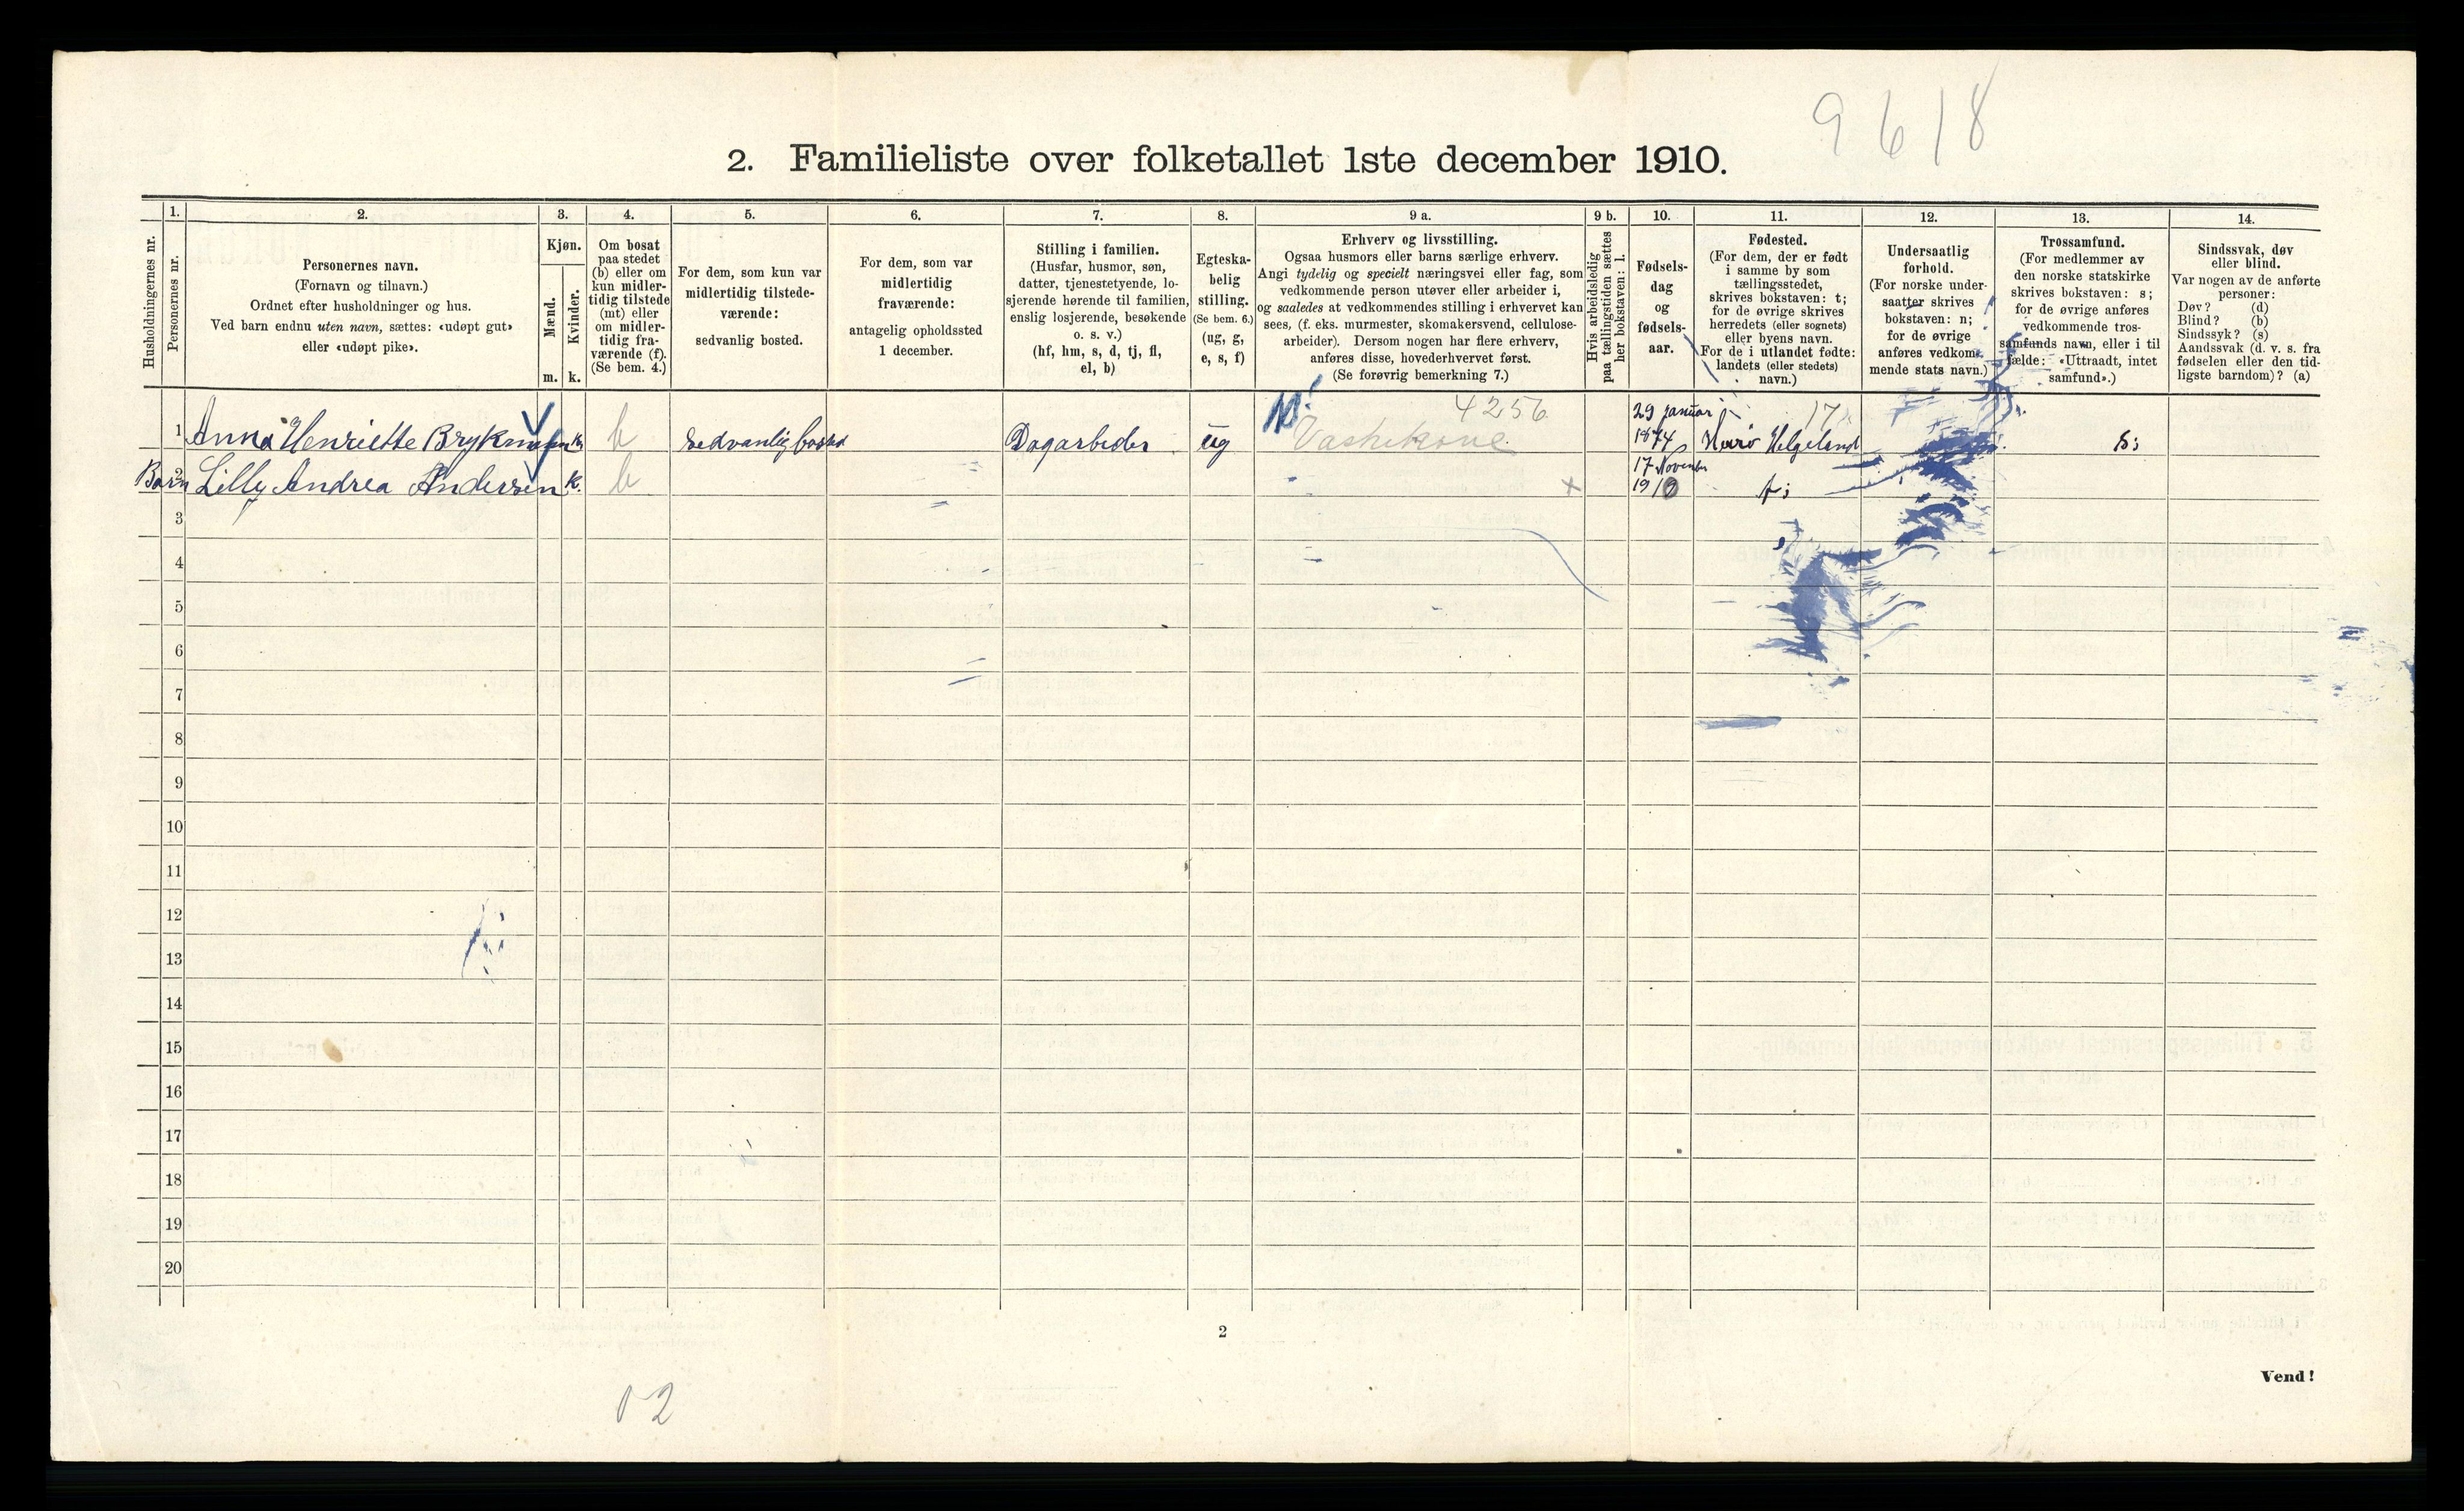 9618
2. Familieliste over folketallet 1ste december 1910.
Husholdningernes nr.
1.
Personernes nr.
2.
Personernes navn.
(Fornavn og tilnavn.)
Ordnet efter husholdninger og hus.
Ved barn endnu uten navn, sættes: «udøpt gut»
eller «udøpt pike».
3.
Kjøn.
Mænd.
Kvinder.
m. k.
4.
Om bosat
paa stedet
(b) eller om
kun midler-
tidig tilstede
(mt) eller
om midler-
tidig fra-
værende (f).
(Se bem. 4.)
5.
For dem, som kun var
midlertidig tilstede-
værende:
sedvanlig bosted.
6.
For dem, som var
midlertidig
fraværende:
antagelig opholdssted
1 december.
7.
Stilling i familien.
(Husfar, husmor, søn,
datter, tjenestetyende, lo-
sjerende hørende til familien,
enslig losjerende, besøkende
o. s. v.)
(hf, hm, s, d, tj, fl,
el, b)
8.
Egteska-
belig
stilling.
(Se bem. 6.)
(ug, g,
e, s, f)
9 a.
Erhverv og livsstilling.
Ogsaa husmors eller barns særlige erhverv.
Angi tydelig og specielt næringsvei eller fag, som
vedkommende person utøver eller arbeider i,
og saaledes at vedkommendes stilling i erhvervet kan
sees, (f. eks. murmester, skomakersvend, cellulose-
arbeider). Dersom nogen har flere erhverv,
anføres disse, hovederhvervet først.
(Se forøvrig bemerkning 7.)
9 b.
Hvis arbeidsledig
paa tællingstiden sættes
her bokstaven: l.
10.
Fødsels-
dag
og
fødsels-
aar.
11.
Fødested.
(For dem, der er født
i samme by som
tællingsstedet,
skrives bokstaven: t;
for de øvrige skrives
herredets (eller sognets)
eller byens navn.
For de i utlandet fødte:
landets (eller stedets)
navn.)
12.
Undersaatlig
forhold.
(For norske under-
saatter skrives
bokstaven: n;
for de øvrige
anføres vedkom-
mende stats navn.)
13.
Trossamfund.
(For medlemmer av
den norske statskirke
skrives bokstaven: s;
for de øvrige anføres
vedkommende tros-
samfunds navn, eller i til
fælde: «Uttraadt, intet
samfund».)
14.
Sindssvak, døv
eller blind.
Var nogen av de anførte
personer:
Døv? (d)
Blind? (b)
Sindssyk? (s)
Aandssvak (d. v. s. fra
fødselen eller den tid-
ligste barndom)? (a)
4256 29 januar 17
1 Anna Henriette k b sedvanlig bosted Dagarbeider ug Vaskekone 1874 Helgeland s;
17 November
Barn 2 Lilly Andrea Andersen k. b x 1910 t;
3
4
5
6
7
8
9
10
11
12
13
14
15
16
17
18
19
20
2
Vend!
0-2